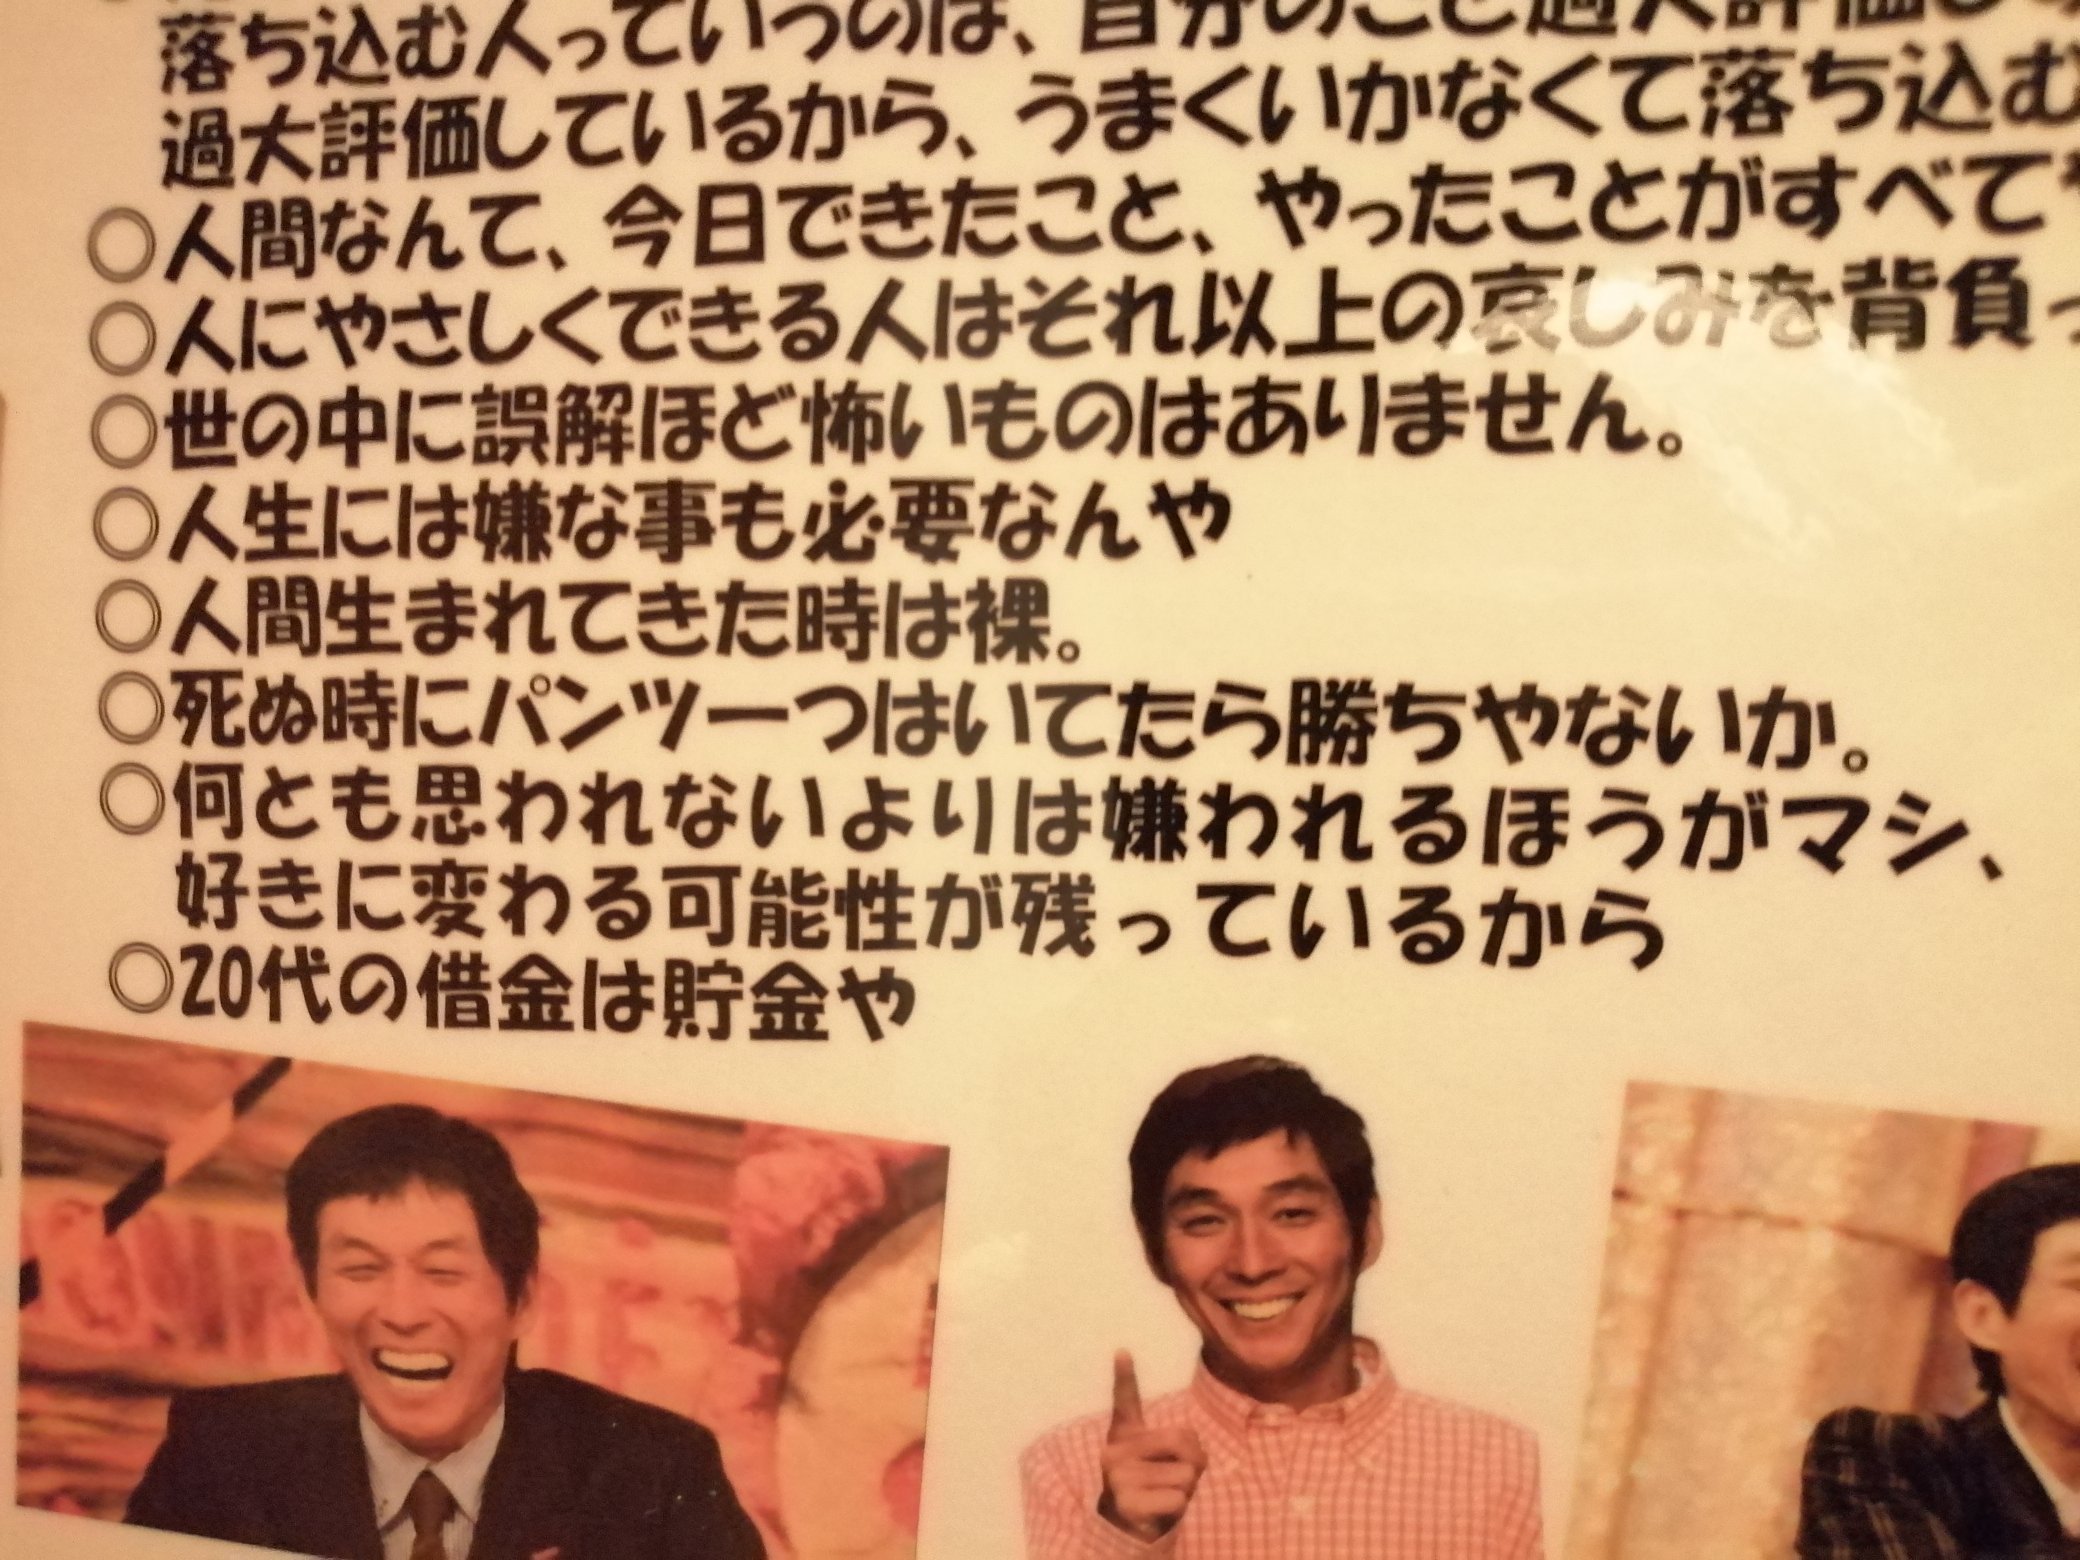 落ち込む人っていうのは、自分のこと過大評価し
過大評価しているから、うまくいかなくて落ち込む
◎人間なんて、今日できたこと、やったことがすべて
◎人にやさしくできる人はそれ以上の哀しみを背負っ
◎世の中に誤解ほど怖いものはありません。
◎人生には嫌な事も必要なんや
◎人間生まれてきた時は裸。
◎死ぬ時にパンツ一つはいてたら勝ちやないか。
◎何とも思われないよりは嫌われるほうがマシ、
好きに変わる可能性が残っているから
◎20代の借金は貯金や